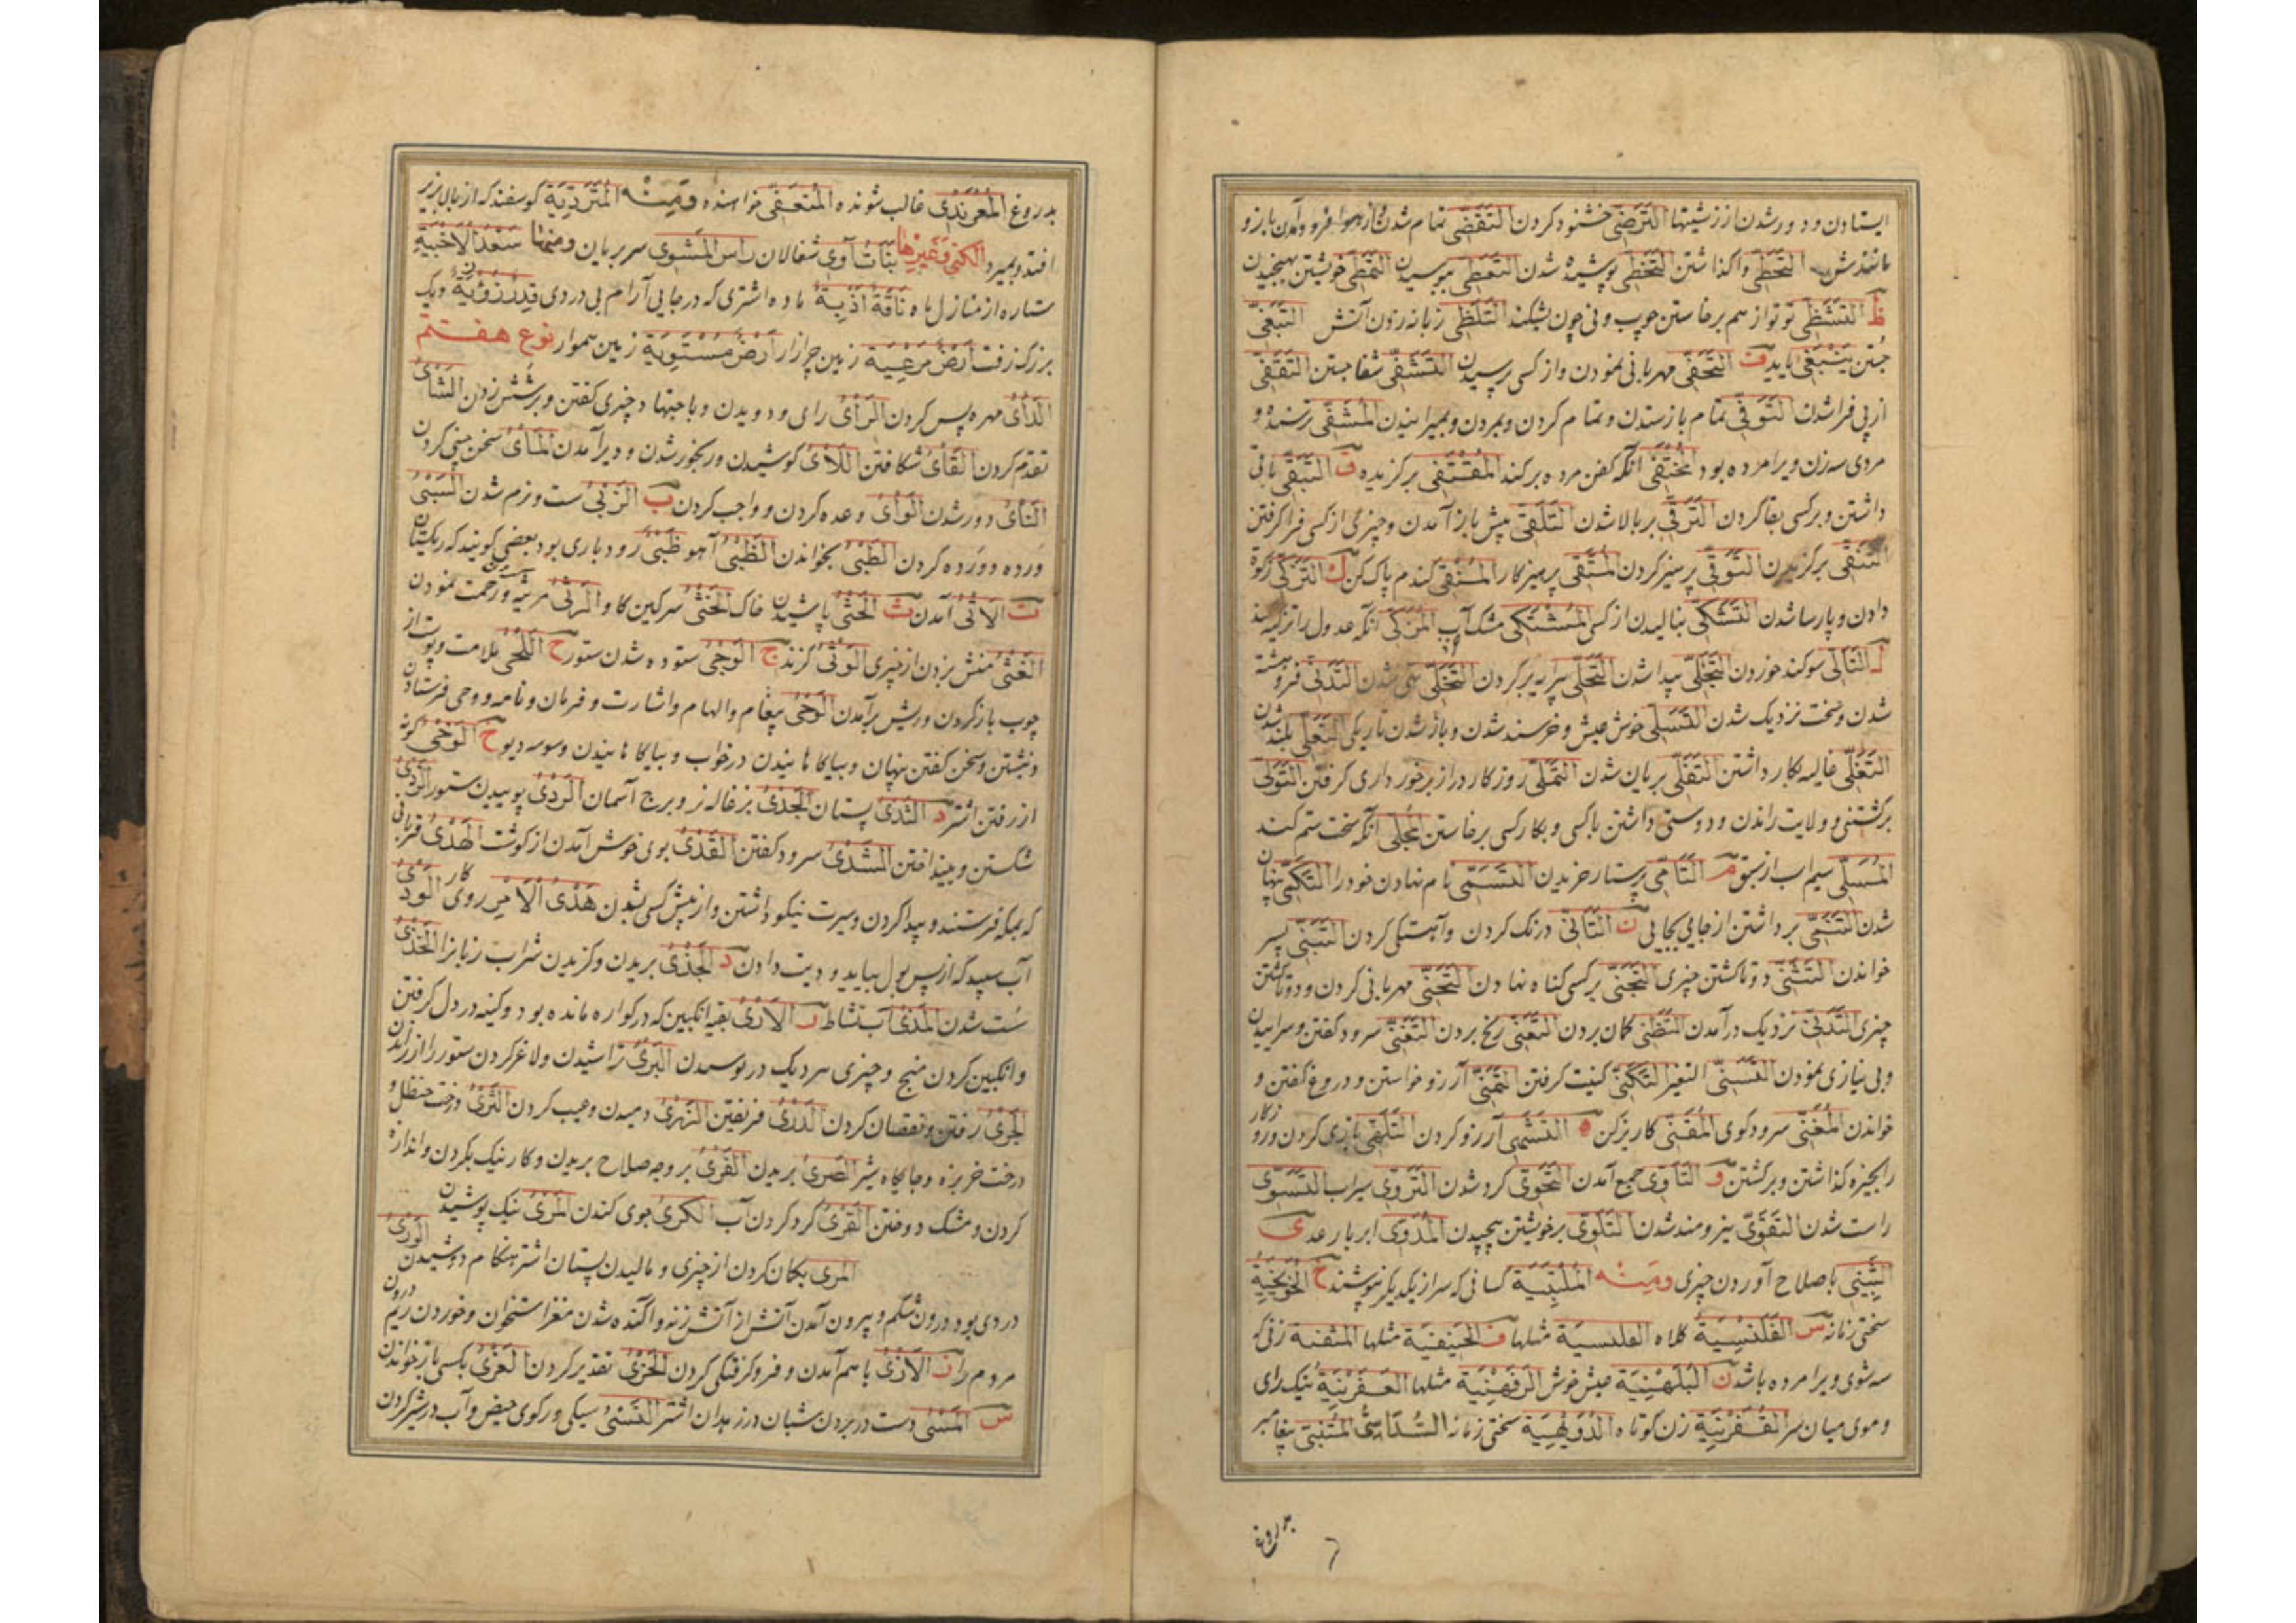 ایستادن و دور شدن از زشتیها التَّرَضّی خشنود کردن التَّقَضّی تمام شدن و از هوا فرو آمدن باز و
مانندش التَّخَطّی واگذاشتن التَّغَطّی پوشیده شدن التَّمَطّی خویشتن بیچیدن
ظ التَّشَظّی تو تو از هم برخاستن چوب و نی چون بشکند التَّلَظّی زبانه زدن آتش التَّبَغّی
جستن یَنْبَغی باید ف التَّحَفّی مهربانی نمودن و از کسی پرسیدن التَّشَفّی شفا جستن التَّقَفّی
از پی فرا شدن التَّوَفّی تمام باز ستدن و تمام کردن و بمردن و بمیرانیدن
مردی سه زن ویرا مرده بود المُخْتَفی آنکه کفن مرده برکند المُقْتَفی برگزیده ق التَّبَقّی باقی
داشتن و بر کسی بقا کردن التَّرَقّی بر بالا شدن التَّلَقّی پیش باز آمدن و چیزی از کسی فرا گرفتن
التَّنَقّی برگزیدن التَّوَقّی پرهیز کردن المُتَّقی پرهیزکار المُنَقّی گندم پاک کن ك التَّزَکّی زکوة
دادن و پارسا شدن التَّشَکّی بنالیدن از کسی المُشْتَکی مشک آب المُزَکّی آنکه عدول را تزکیه
ل التَّأَلّی سوکند خوردن التَّجَلّی پیدا شدن التَّحَلّی پیرایه بر کردن التَّخَلّی تهی شدن التَّدَلّی فروهشته
شدن و سخت نزدیک شدن التَّسَلّی خوش عیش و خرسند شدن و باز شدن تاریکی التَّعَلّی بلند شدن
التَّغَلّی غالیه بکار داشتن التَّقَلّی بریان شدن التَّمَلّی روزگار دراز برخورداری گرفتن التَّوَلّی
برگشتن و ولایت راندن و دوستی داشتن با کسی و بکار کسی برخاستن آنکه سخت ستم کند
المُسَلّی سیم اسب از سبق م التَّأَمّی پرستار خریدن التَّسَمّی نام نهادن خود را التَّکَمّی پنهان
شدن التَّنَمّی برداشتن از جایی بجایی ن التَّأَنّی درنگ کردن و آهستگی کردن التَّبَنّی پسر
خواندن التَّثَنّی دوتا گشتن چیزی التَّجَنّی بر کسی گناه نهادن التَّحَنّی مهربانی کردن و دوتا گشتن
چیزی التَّدَنّی نزدیک درآمدن التَّظَنّی گمان بردن التَّعَنّی رنج بردن التَّغَنّی سرود گفتن و سراییدن
و بی نیازی نمودن التَّسَنّی التغیر التَّکَنّی کنیت گرفتن التَّمَنّی آرزو خواستن و دروغ گفتن و
خواندن المُغَنّی سرودگوی المُقَنّی کاریزکن ه التَّشَهّی آرزو کردن التَّلَهّی بازی کردن و روزکار
را بخیره گذاشتن و برگشتن و التَّأَوّی جمع آمدن التَّحَوّی گرد شدن التَّرَوّی سیراب التَّسَوّی
راست شدن التَّقَوّی نیرومند شدن التَّلَوّی بر خویشتن پیچیدن المُدَوّی ابر با رعد ی
باصلاح آوردن چیزی ومنه کسانی که سر از یکدیگر نپوشند خ الخُوَیخِیَة
سختی زمانه س القَلَنْسِیَة کلاه القلنسیة مثلها ف الحَنیفِیَة مثلها المثفیة زنی که
سه شوی ویرا مرده باشد ن البُلَهْنِیَة عیش خوش الرُّفَهْنِیَة مثلها العَفَرْنِیَة نیک رای
و موی میان سر زن کوتاه الدُّوَیْهِیَة سختی زمانه المُتَنَبّی پیغامبر
بدروغ
بدروغ المُغْرَنْدی غالب شونده المُتَعَفّی خواهنده ومنه المُتَرَدِّیَة گوسفند که از بالا بزیر
افتد و بمیرد الکنی وغیرها بَنَاتُ آوی شغالان رأس المَشْوی سر بریان ومنها سَعْدُ الأَخْبِیَة
ستاره از منازل ماه نَاقَةٌ أَذِیَةٌ ماده اشتری که در جایی آرام نگیرد بی دردی قِدْرٌ زُؤَزِیَةٌ دیک
بزرگ زفت أَرْضٌ مَرْعِیَة زمین چرازار أَرْضٌ مُسْتَوِیَة زمین هموار نوع هفتم
الدَّأْیُ مهره پس کردن الرَّأْیُ رای و دیدن
تقدّم کردن الفَأْیُ شکافتن اللَّأْیُ کوشیدن و رنجور شدن و دیر آمدن المَأْیُ سخن چینی کردن
النَّأْیُ دور شدن الوَأْیُ وعده کردن و واجب کردن ب الزَّبْیُ سست و نرم شدن السَّبْیُ
برده کردن الطَّبْیُ بخواندن الظَّبْیُ آهو ظَبْیٌ رودباری بود بعضی گویند که ریگیست
ت الأَتْیُ آمدن ث الحَثْیُ پاشیدن خاک الخَثْیُ سرگین گاو الرَّثْیُ مرثیه و رحمت نمودن
الغَثْیُ منش بزدن از چیزی الوَثْیُ گزند ج الوَجْیُ ستوده شدن ستور ح اللَّحْیُ ملامت و پوست از
چوب باز کردن و ریش برآمدن الوَحْیُ پیغام و الهام و اشارت و فرمان و نامه و وحی فرستادن
و نبشتن و سخن گفتن پنهان و بیاگاهانیدن در خواب و بیاگاهانیدن وسوسه دیو خ الوَخْیُ گونه
از رفتن اشتر د الثَّدْیُ پستان الجَدْیُ بزغاله نر و برج آسمان الرَّدْیُ پوییدن ستور
شکستن و بینداختن السَّدْیُ سرود گفتن القَدْیُ بوی خوش آمدن از گوشت الهَدْیُ قربانی
که بمکه فرستند و پیدا کردن و سیرت نیکو داشتن و از پیش کسی شدن هَدْیُ الأَمْرِ روی کار الوَدْیُ
آب سپید که از پس بول بیاید و دیت دادن ذ الجَذْیُ بریدن و گزیدن شراب زبانرا الخَذْیُ
سست شدن المَذْیُ آب نشاط ر الأَرْیُ بقیه انگبین که در کواره مانده بود و کینه در دل گرفتن
و انگبین کردن منج و چیزی سر دیک درنوسیدن البَرْیُ تراشیدن و لاغر کردن ستور را از راندن
الجَرْیُ رفتن و نقصان کردن الدَّرْیُ فریفتن الزَّرْیُ دمیدن و عیب کردن الشَّرْیُ درخت حنظل و
درخت خربزه و جایگاه شیر الصَّرْیُ بریدن الفَرْیُ بر وجه صلاح بریدن و کار نیک بکردن و اندازه
کردن و مشک دوختن القَرْیُ گرد کردن آب الکَرْیُ جوی کندن المَرْیُ نیک پوشیدن
المری بگمان کردن از چیزی و مالیدن پستان اشتر هنگام دوشیدن الوَرْیُ
دردی بود درون شکم و بیرون آمدن آتش از آتش زنه و آکنده شدن مغز استخوان و خوردن ریم درون
مردم را ز الأَزْیُ باهم آمدن و فروگرفتگی کردن الحَزْیُ تقدیر کردن العَزْیُ بکسی باز خواندن
س المَسْیُ دست در بردن شبان در زهدان اشتر النَّسْیُ سیکی و رکوی حیض و آب در شیر کردن